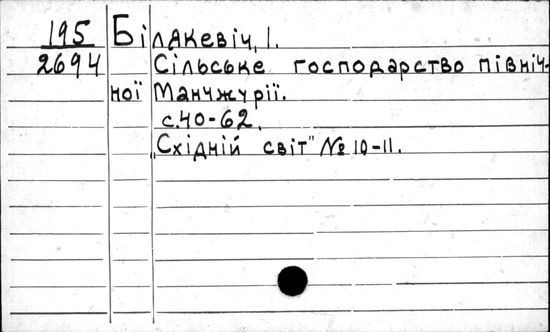 195 Білякевіч, І.
2694 Сільське господарство північ-
ної Манчжурії.
с.40-62.
„Східній світ" № 10-11.